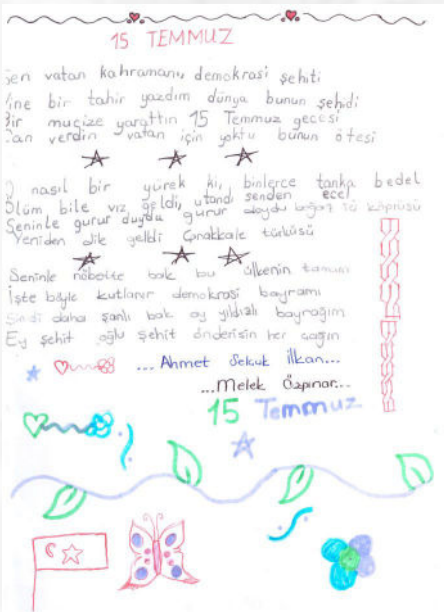 15 TEMMUZ
Sen vatan kahramanı, demokrasi şehiti
Yine bir tahir yazdım dünya bunun şehidi
Bir muçize yarattın 15 Temmuz gecesi
Can verdin vatan için yoktu bunun ötesi
O nasıl bir yürek ki, binlerce tanka bedel
Ölüm bile vız geldi, utandı senden ecel
Seninle gurur duydu gurur duydu boğaz köprüsü
Yeniden dik geldi Çanakkale türküsü
Seninle nöbette bak bu ülkenin tamamı
İşte böyle kutlanır demokrasi bayramı
Şimdi daha şanlı bak ay yıldızlı bayrağım
Ey şehit oğlu şehit önderisin her çağın
...Ahmet Selcuk İlkan...
...Melek Özpınar...
15 Temmuz